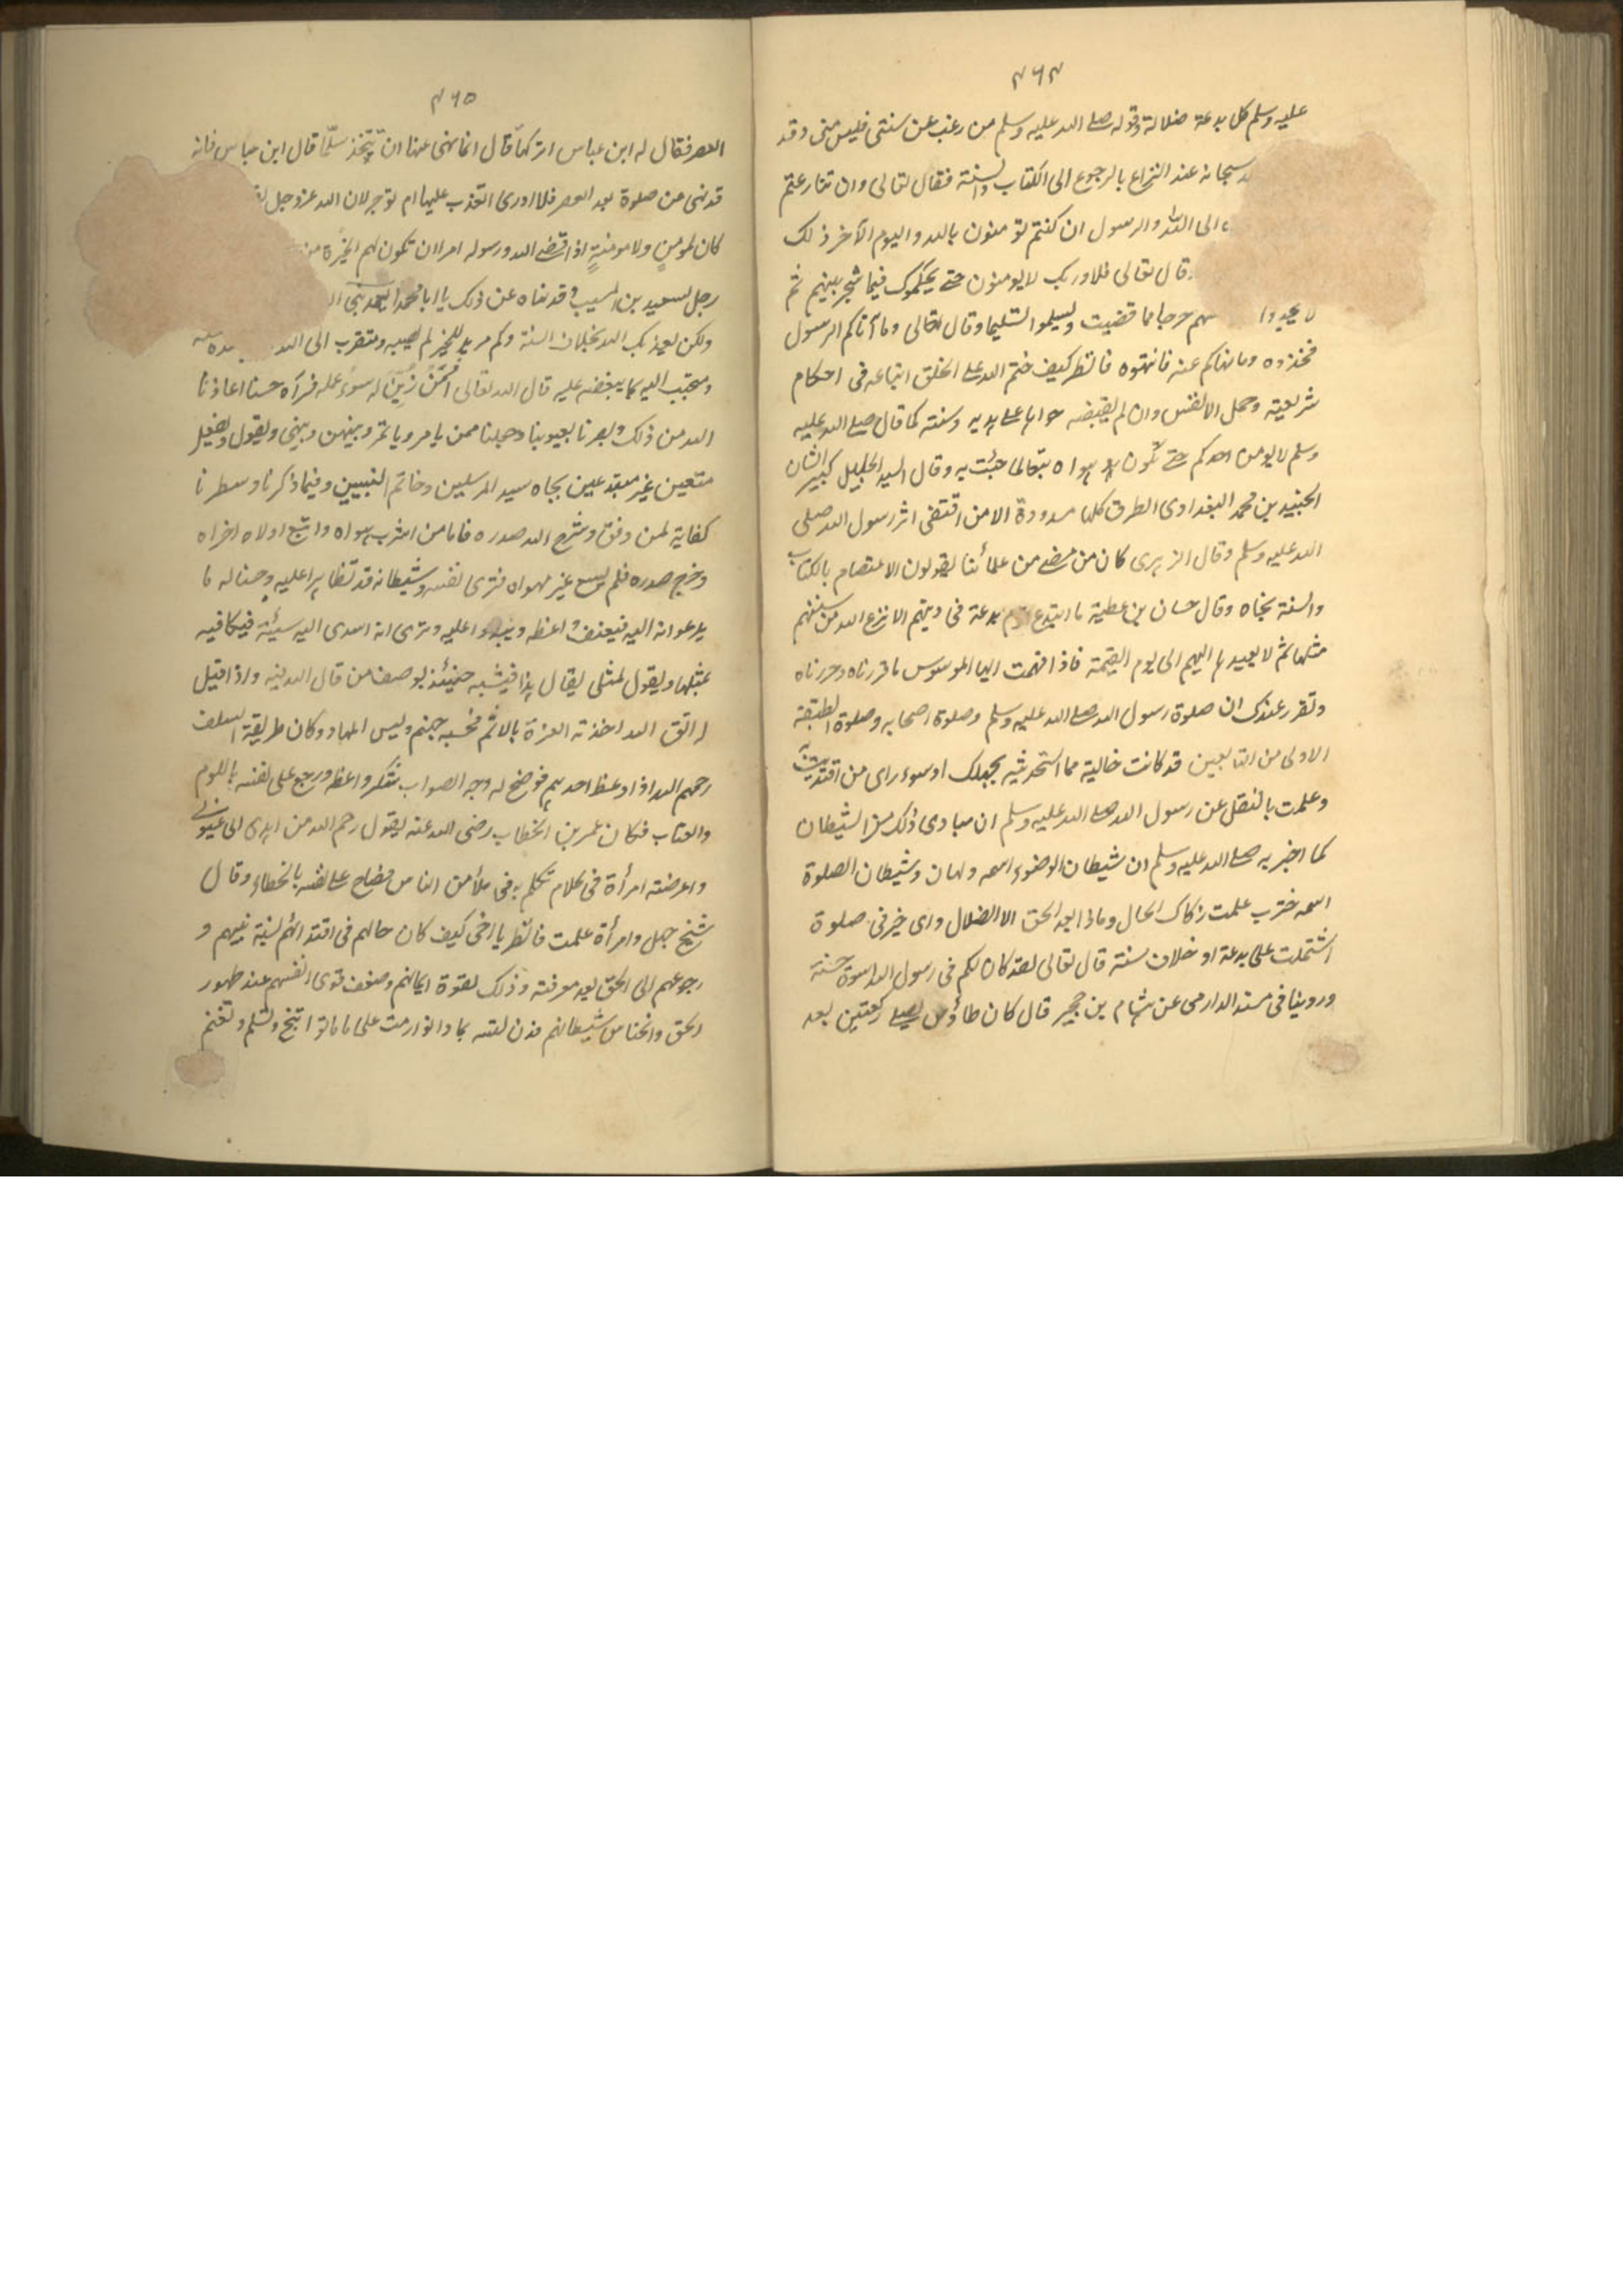 ٤٦٤
عليه وسلم كل بدعة ضلالة وقوله صلے الله عليه وسلم من رغب عن سنتى فليس منى وقد
سبحانه عند النزاع بالرجوع الى الكتاب والسنة فقال تعالى وان تنازعتم
الى الله والرسول ان كنتم تؤمنون بالله واليوم الآخر ذلك
وقال تعالى فلا وربك لا يومنون حتے يحكموك فيما شجر بينهم ثم
لا يجدوا حرجا مما قضيت ويسلموا تسليما وقال تعالى وما آتاكم الرسول
فخذوه وما نهاكم عنه فانتهوه فانظر كيف ختم الله على الخلق اتباعه فى احكام
شريعته وحمل الانفس وان لم يقبضه هواها علے هديه وسنته كما قال صلے الله عليه
وسلم لا يومن احدكم حتے تكون هواه تبعا لما جئت به وقال السيد الجليل كبير الشان
الجنيد بن محمد البغدادى الطرق كلها مسدودة الا من اقتفى اثر رسول الله صلى
الله عليه وسلم وقال الزهرى كان من مضے من علمائنا يقولون الاعتصام بالكتاب
والسنة نجاه وقال حسان بن عطية ما ابتدع قوم بدعة فى دينهم الا نزع الله من سنتهم
مثلها ثم لا يعيدها اليهم الى يوم القيمة فاذا فهمت ايها الموسوس ما قررناه وحررناه
وتقرر عندك ان صلوة رسول الله صلے الله عليه وسلم وصلوة اصحابه وصلوة الطبقة
الاولى من التابعين قد كانت خالية مما استحدثيه بجهلك او سوء راى من اقتديت به
وعلمت بالنقل عن رسول الله صلے الله عليه وسلم ان مبادى ذلك من الشيطان
كما اخبر به صلے الله عليه وسلم ان شيطان الوضوء اسمه ولهان وشيطان الصلوة
اسمه خنزب علمت زكاك الحال وماذا بعد الحق الا الضلال واى خير فى صلوة
اشتملت على بدعة او خلاف سنة قال تعالى لقد كان لكم فى رسول الله اسوة حسنة
وروينا فى مسند الدارمى عن هشام بن حجير قال كان طاؤس يصلے ركعتين بعد
٤٦٥
العصر فقال له ابن عباس اتركها قال انما نهى عنها ان يتخذ سلما قال ابن عباس فانه
قد نهى عن صلوة بعد العصر فلا ادرى اتعذب عليها ام توجر لان الله عز وجل
كان لمومن ولا مومنةٍ اذا قضے الله ورسوله امرا ان تكون لهم الخيرة من
رجل لسعيد بن المسيب وقد نهاه عن ذلك يا ابا محمد ايعذبنى
ولكن يعذبك الله بخلاف السنة وكم مريد للخير لم يصبه ومتقرب الى الله
ومتحبب اليه بما يبغضه عليه قال الله تعالى أفمن زين له سوء عمله فرآه حسنا اعاذنا
الله من ذلك وبصرنا بعيوبنا وجعلنا ممن يامر وياتمر وينهى وينتهى ويقول ويفعل
متبعين غير مبتدعين بجاه سيد المرسلين وخاتم النبيين وفيما ذكرنا وسطرنا
كفاية لمن وفق وشرح الله صدره فاما من اشرب هواه واتبع اولاه اخراه
وحرج صدره فلم يسع غير هواه فترى نفسه وشيطانه قد تظاهرا عليه وحسنا له ما
يدعوانه اليه فيعنف واعظه ويعدو عليه ويرى انه اسدى اليه سيئة فيكافيه
بمثلها ويقول لمثلى يقال هذا فيشبه حينئذ بوصف من قال الله فيه واذا قيل
له اتق الله اخذته العزة بالاثم فحسبه جهنم ولبس المهاد وكان طريقة السلف
رحمهم الله اذا وعظ احدهم فوضح له وجه الصواب شكر واعظه ورجع على نفسه باللوم
والعتاب فكان عمر بن الخطاب رضى الله عنه يقول رحم الله من اهدى الى عيوبى
واعرضته امرأة فى كلام تكلم به فى ملأ من الناس فصاح على نفسه بالخطاء وقال
شيخ جهل وامرأة علمت فانظر يا اخى كيف كان حالهم فى اقتدائهم بسنة نبيهم و
رجوعهم الى الحق بعد معرفته وذلك لقوة ايمانهم وضعف قوى انفسهم عند ظهور
الحق وانخناس شيطانهم فدن لله بما دانوا رمت على ما ماتوا تنج وتسلم وتغنم